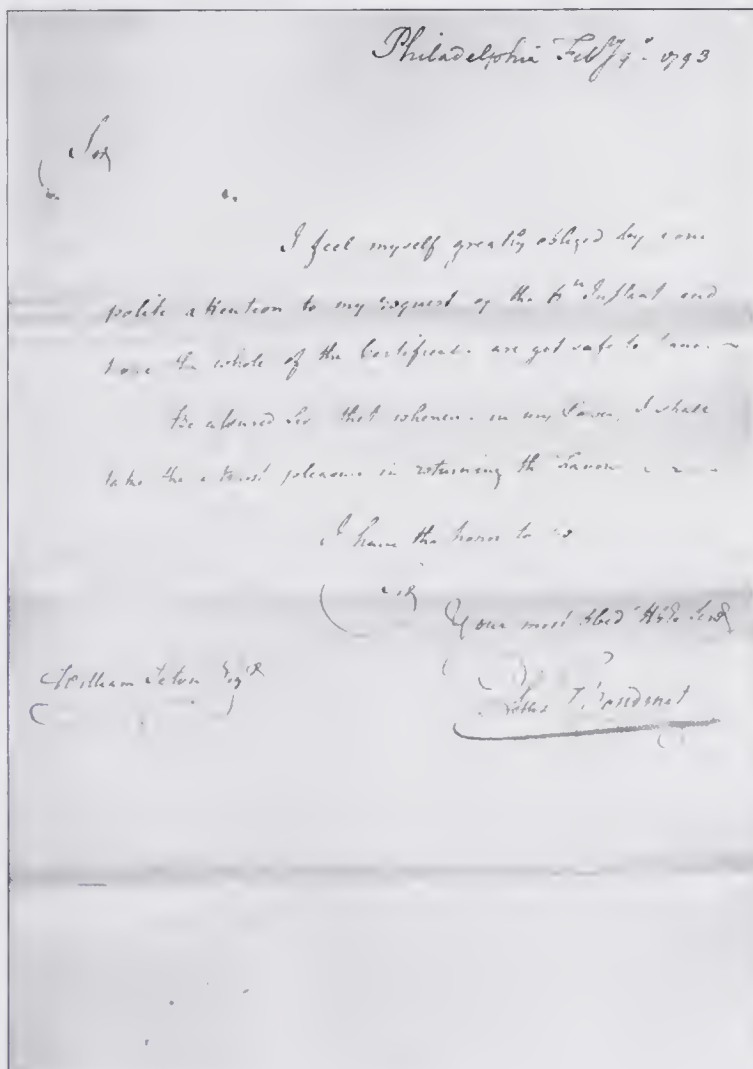 Philadelphia Feb^ry 9. 1793
Sir
I feel myself greatly obliged by your
polite attention to my request of the 6^th Instant and
the whole of the Certificates are got safe to
Be assured Sir that whenever in my Power, I shall
take the utmost pleasure in returning the Favour
I have the honor to be
Sir
Your most Obed^t H^ble Serv^t
William Seton Esq^r
Boudinot